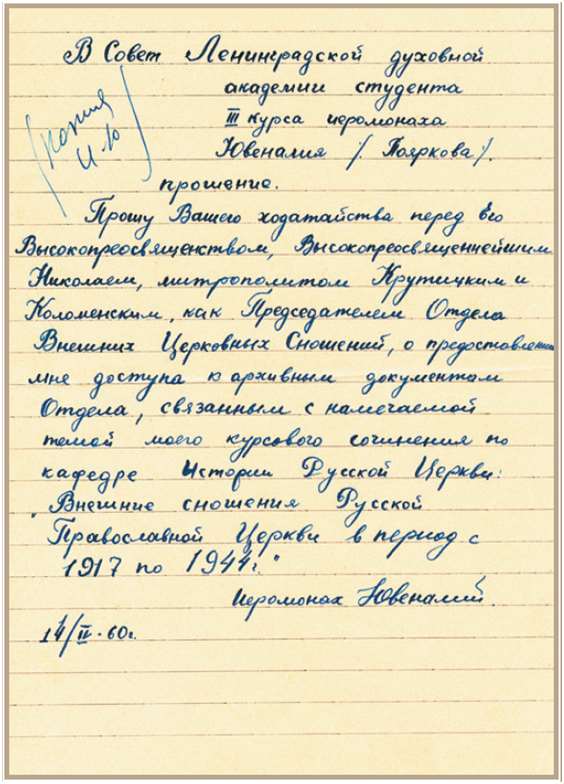 В Совет Ленинградской духовной
академии студента
III курса иеромонаха
Ювеналия /. Пояркова/.
прошение.
(копия
И.Ю)
Прошу Вашего ходатайства перед Его
Высокопреосвященством, Высокопреосвященнейшим
Николаем, митрополитом Крутицким и
Коломенским, как Председателем Отдела
Внешних Церковных Сношений, о предоставлении
мне доступа к архивным документам
Отдела, связанным с намечаемой
темой моего курсового сочинения по
кафедре Истории Русской Церкви:
"Внешние сношения Русской
Православной Церкви в период с
1917 по 1944г."
Иеромонах Ювеналий.
14/II-60г.